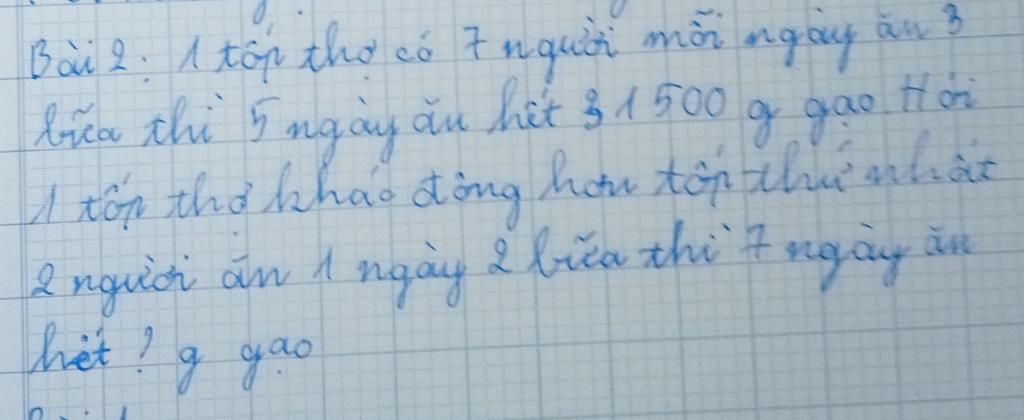 Bài 2: 1 tốp thợ có 7 người mỗi ngày ăn 3
bữa thì 5 ngày ăn hết 31500 g gạo Hỏi
1 tốp thợ khác đông hơn tốp thứ nhất
2 người ăn 1 ngày 2 bữa thì 7 ngày ăn
hết ? g gạo